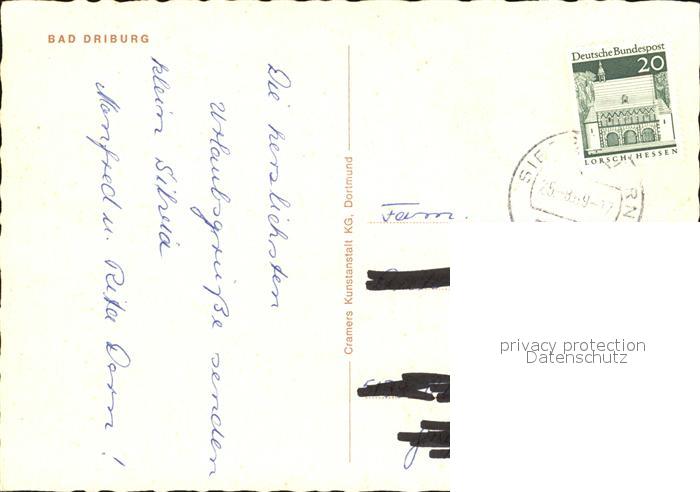 BAD DRIBURG
Die herzlichsten
Urlaubsgrüße senden
klein Silvia
Manfred u. Rita Dorn!
Cramers Kunstanstalt KG, Dortmund
Deutsche Bundespost
20
LORSCH/HESSEN
Fam.
privacy protection
Datenschutz